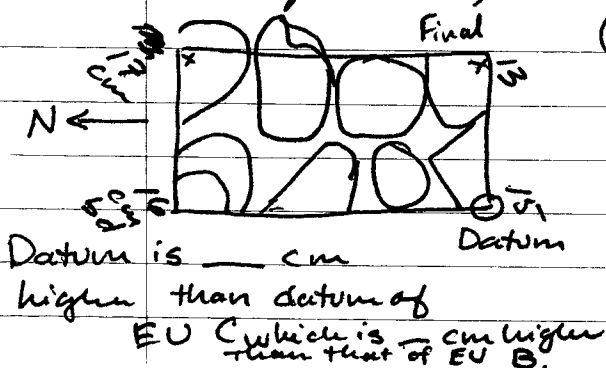 Final
cm
N
cm
Datum
Datum is ___ cm
higher than datum of
EU C which is _ cm higher
than that of EU B.